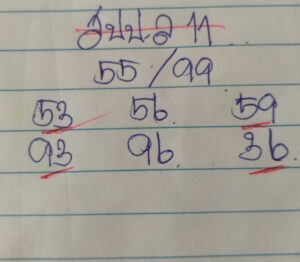 ธปป.ล 11
55/99
53 56 59
93 96 36